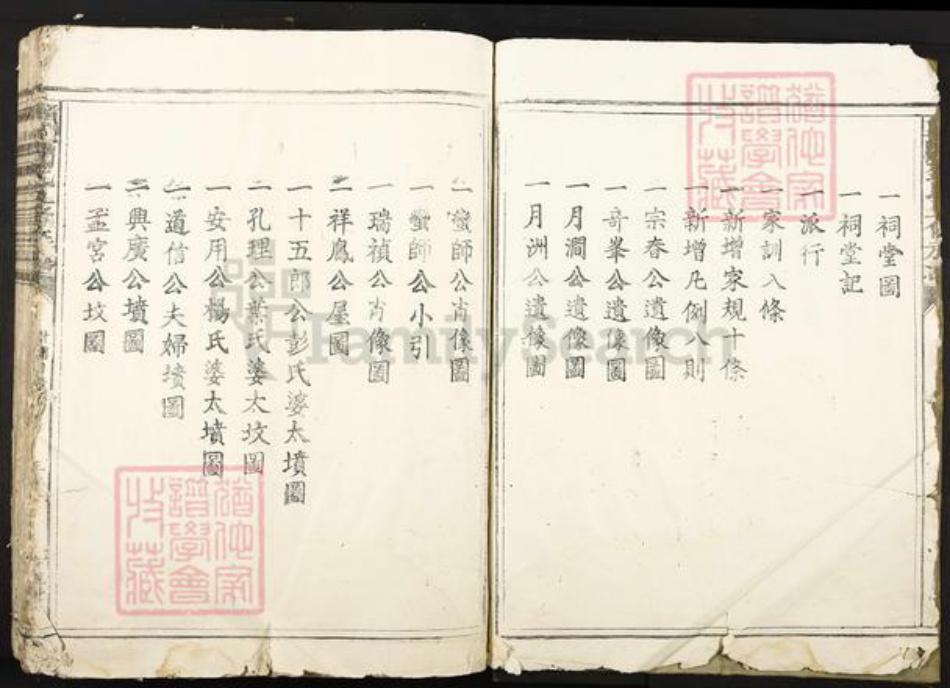 一祠堂圖
一祠堂記
一派行
一家訓八條
一新增家規十條
一新增凡例八則
一宗春公遺像圖
一奇峯公遺像圖
一月澗公遺像圖
一月洲公遺像圖
一蠻師公肖像圖
一蠻師公小引
一瑞禎公肖像圖
一祥鳳公屋圖
一十五郎公彭氏婆太墳圖
一孔理公葉氏婆太坟圖
一安用公楊氏婆太墳圖
一道信公夫婦墳圖
一興廣公墳圖
一孟宮公坟圖
譜學會
收藏
譜學會
收藏
FamilySearch